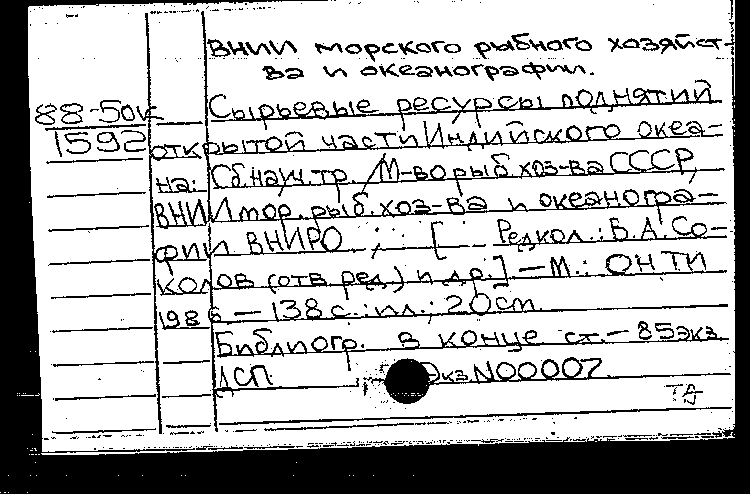 ВНИИ морского рыбного хозяйст-
ва и океанографии.
88-50к Сырьевые ресурсы поднятий
1592 открытой части Индийского океа-
на: Сб.науч.тр. / М-во рыб.хоз-ва СССР,
ВНИИ мор. рыб.хоз-ва и океаногра-
фии ВНИРО ; [ Редкол.: Б.А. Со-
колов (отв ред.) и др.] — М.: ОНТИ
1986 — 138 с. : ил.; 20 см.
Библиогр. в конце ст. — 85 экз
ДСП Экз.N00007.